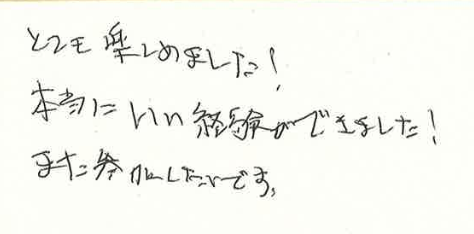 とても楽しめました!
本当にいい経験ができました!
また参加したいです。